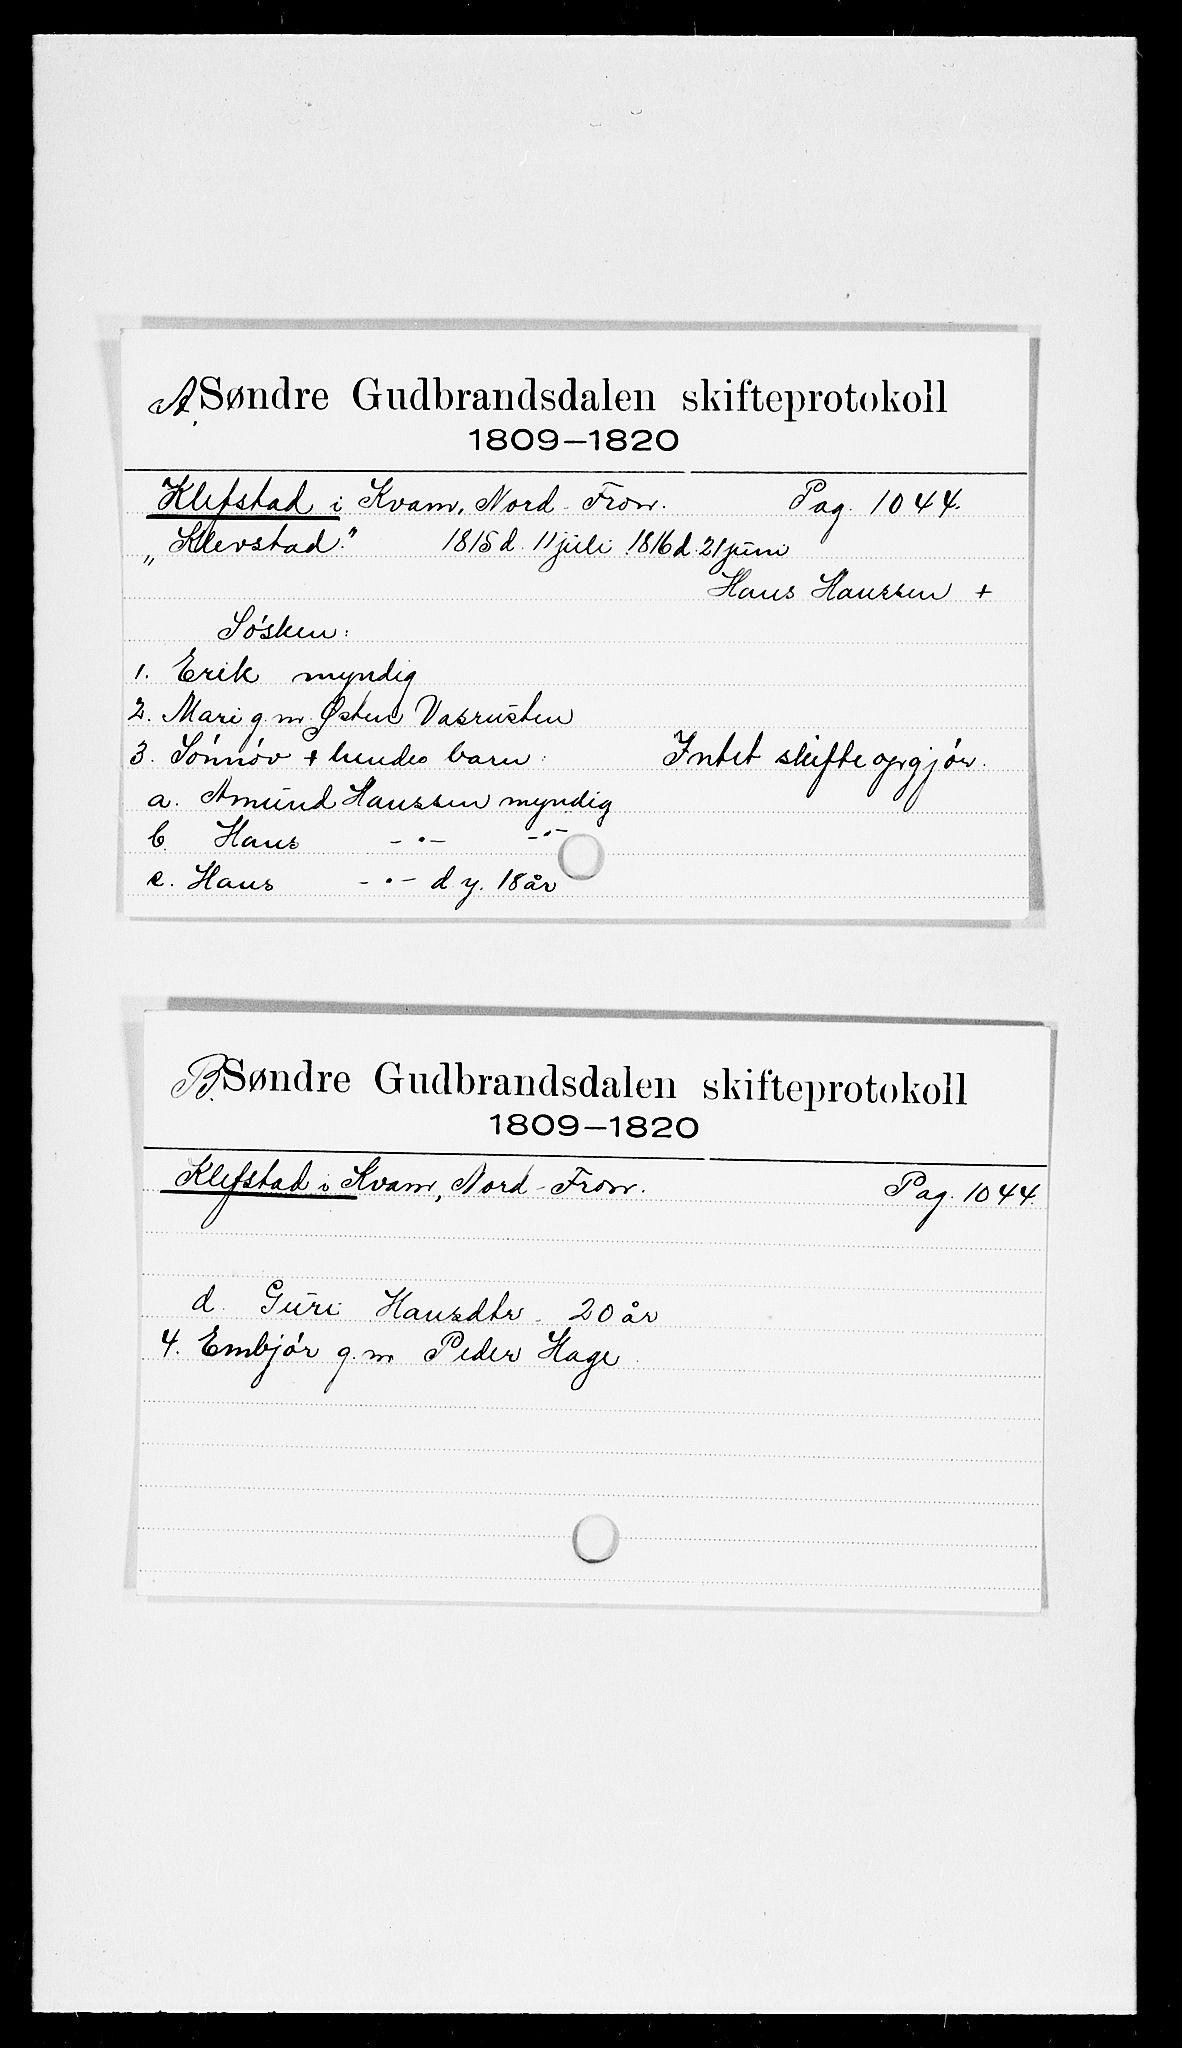 A. Søndre Gudbrandsdalen skifteprotokoll
1809–1820
Klefstad i Kvam, Nord-Fron. Pag. 1044.
„Klevstad.” 1815 d. 11 juli 1816 d. 21 juni
Hans Hanssen +
Søsken:
1. Erik myndig
2. Mari g. m. Østen Vasrusten
3. Sønnøv + hendes barn: Intet skifteopgjør.
a. Amund Hanssen myndig
b. Hans -〃- -〃-
c. Hans -〃- d. y. 18 år
B. Søndre Gudbrandsdalen skifteprotokoll
1809–1820
Klefstad i Kvam, Nord-Fron. Pag. 1044.
d. Guri Hansdtr. 20 år
4. Embjør g. m. Peder Hage.